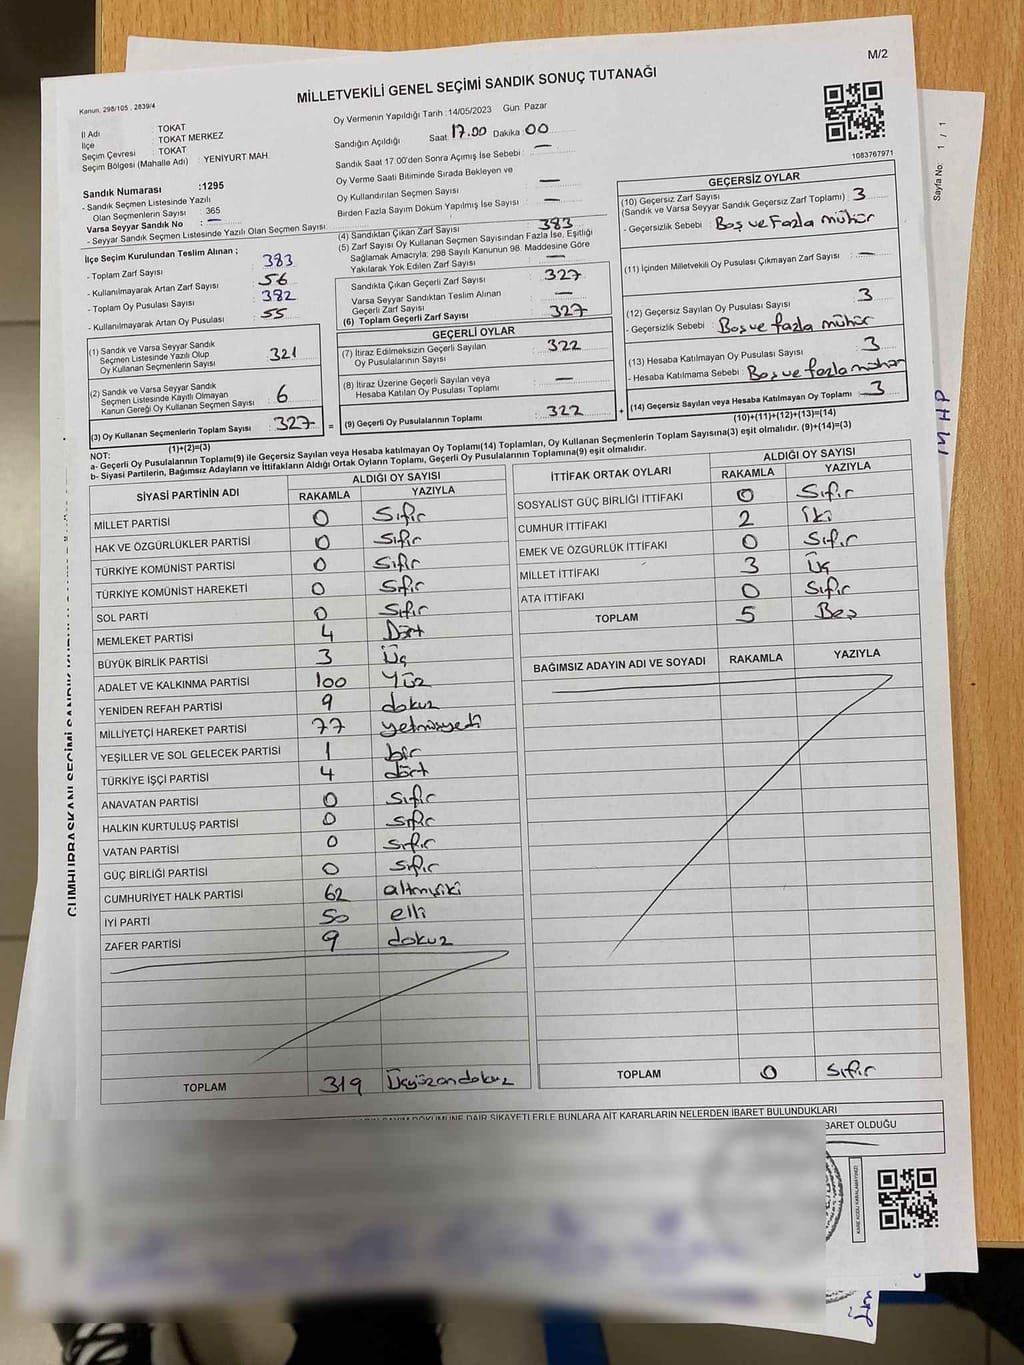 M/2
Kanun, 298/105 , 2839/4
MİLLETVEKİLİ GENEL SEÇİMİ SANDIK SONUÇ TUTANAĞI
İl Adı : TOKAT
İlçe : TOKAT MERKEZ
Seçim Çevresi : TOKAT
Seçim Bölgesi (Mahalle Adı) : YENİYURT MAH.
Sandık Numarası :1295
- Sandık Seçmen Listesinde Yazılı
Olan Seçmenlerin Sayısı : 365
Varsa Seyyar Sandık No : —
- Seyyar Sandık Seçmen Listesinde Yazılı Olan Seçmen Sayısı
İlçe Seçim Kurulundan Teslim Alınan ;
- Toplam Zarf Sayısı : 383
- Kullanılmayarak Artan Zarf Sayısı : 56
- Toplam Oy Pusulası Sayısı : 382
- Kullanılmayarak Artan Oy Pusulası : 55
(1) Sandık ve Varsa Seyyar Sandık
Seçmen Listesinde Yazılı Olup
Oy Kullanan Seçmenlerin Sayısı : 321
(2) Sandık ve Varsa Seyyar Sandık
Seçmen Listesinde Kayıtlı Olmayan
Kanun Gereği Oy Kullanan Seçmen Sayısı : 6
(3) Oy Kullanan Seçmenlerin Toplam Sayısı : 327 =
(1)+(2)=(3)
Oy Vermenin Yapıldığı Tarih : 14/05/2023 Gün: Pazar
Sandığın Açıldığı Saat 17.00 Dakika 00
Sandık Saat 17 00'den Sonra Açımış İse Sebebi : —
Oy Verme Saati Bitiminde Sırada Bekleyen ve
Oy Kullandırılan Seçmen Sayısı —
Birden Fazla Sayım Döküm Yapılmış İse Sayısı —
(4) Sandıktan Çıkan Zarf Sayısı 383
(5) Zarf Sayısı Oy Kullanan Seçmen Sayısından Fazla İse, Eşitliği
Sağlamak Amacıyla; 298 Sayılı Kanunun 98. Maddesine Göre
Yakılarak Yok Edilen Zarf Sayısı —
Sandıkta Çıkan Geçerli Zarf Sayısı 327
Varsa Seyyar Sandıktan Teslim Alınan
Geçerli Zarf Sayısı —
(6) Toplam Geçerli Zarf Sayısı 327
GEÇERLİ OYLAR
(7) İtiraz Edilmeksizin Geçerli Sayılan
Oy Pusulalarının Sayısı : 322
(8) İtiraz Üzerine Geçerli Sayılan veya
Hesaba Katılan Oy Pusulası Toplamı : —
(9) Geçerli Oy Pusulalarının Toplamı : 322 +
1083767971
GEÇERSİZ OYLAR
(10) Geçersiz Zarf Sayısı
(Sandık ve Varsa Seyyar Sandık Geçersiz Zarf Toplamı) : 3
- Geçersizlik Sebebi : Boş ve Fazla mühür
(11) İçinden Milletvekili Oy Pusulası Çıkmayan Zarf Sayısı : —
(12) Geçersiz Sayılan Oy Pusulası Sayısı : 3
- Geçersizlik Sebebi : Boş ve fazla mühür
(13) Hesaba Katılmayan Oy Pusulası Sayısı : 3
- Hesaba Katılmama Sebebi : Boş ve fazla mühür
(14) Geçersiz Sayılan veya Hesaba Katılmayan Oy Toplamı : 3
(10)+(11)+(12)+(13)=(14)
NOT:
a- Geçerli Oy Pusulalarının Toplamı(9) ile Geçersiz Sayılan veya Hesaba katılmayan Oy Toplamı(14) Toplamları, Oy Kullanan Seçmenlerin Toplam Sayısına(3) eşit olmalıdır. (9)+(14)=(3)
b- Siyasi Partilerin, Bağımsız Adayların ve İttifakların Aldığı Ortak Oyların Toplamı, Geçerli Oy Pusulalarının Toplamına(9) eşit olmalıdır.
SİYASİ PARTİNİN ADI ALDIĞI OY SAYISI
RAKAMLA YAZIYLA
MİLLET PARTİSİ 0 Sıfır
HAK VE ÖZGÜRLÜKLER PARTİSİ 0 Sıfır
TÜRKİYE KOMÜNİST PARTİSİ 0 Sıfır
TÜRKİYE KOMÜNİST HAREKETİ 0 Sıfır
SOL PARTİ 0 Sıfır
MEMLEKET PARTİSİ 4 Dört
BÜYÜK BİRLİK PARTİSİ 3 Üç
ADALET VE KALKINMA PARTİSİ 100 Yüz
YENİDEN REFAH PARTİSİ 9 dokuz
MİLLİYETÇİ HAREKET PARTİSİ 77 yetmişyedi
YEŞİLLER VE SOL GELECEK PARTİSİ 1 bir
TÜRKİYE İŞÇİ PARTİSİ 4 dört
ANAVATAN PARTİSİ 0 Sıfır
HALKIN KURTULUŞ PARTİSİ 0 sıfır
VATAN PARTİSİ 0 Sıfır
GÜÇ BİRLİĞİ PARTİSİ 0 sıfır
CUMHURİYET HALK PARTİSİ 62 altmışiki
İYİ PARTİ 50 elli
ZAFER PARTİSİ 9 dokuz
TOPLAM 319 Üçyüzondokuz
İTTİFAK ORTAK OYLARI ALDIĞI OY SAYISI
RAKAMLA YAZIYLA
SOSYALİST GÜÇ BİRLİĞİ İTTİFAKI 0 Sıfır
CUMHUR İTTİFAKI 2 iki
EMEK VE ÖZGÜRLÜK İTTİFAKI 0 Sıfır
MİLLET İTTİFAKI 3 Üç
ATA İTTİFAKI 0 Sıfır
TOPLAM 5 Beş
BAĞIMSIZ ADAYIN ADI VE SOYADI RAKAMLA YAZIYLA
TOPLAM 0 Sıfır
DÖKÜMÜNE DAİR ŞİKAYETLERLE BUNLARA AİT KARARLARIN NELERDEN İBARET BULUNDUKLARI
İBARET OLDUĞU
Sayfa No: 1 / 1
MHP